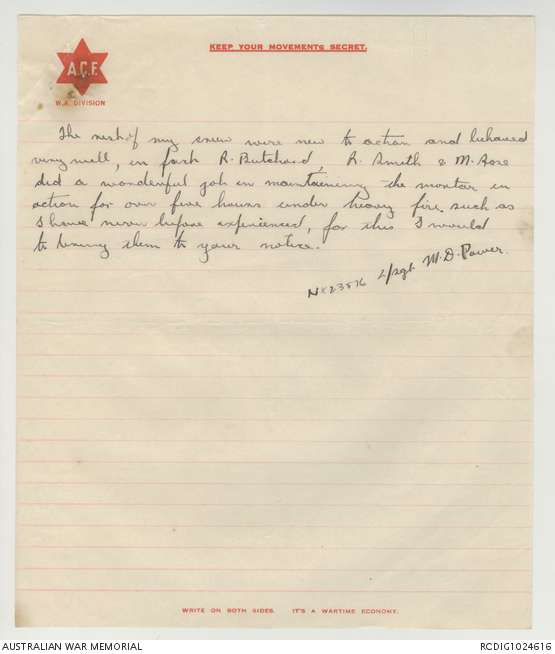 KEEP YOUR MOVEMENTS SECRET.
A.C.F.
W.A. DIVISION
The rest of my crew were new to action and behaved
very well, in fact R. Butchard, R. Smith & M. Aore
did a wonderful job in maintaining the mortar in
action for over five hours under heavy fire such as
I have never before experienced, for this I would
to bring them to your notice.
NX23876 L/sgt M.D. Power.
WRITE ON BOTH SIDES. IT'S A WARTIME ECONOMY.
AUSTRALIAN WAR MEMORIAL
RCDIG1024616